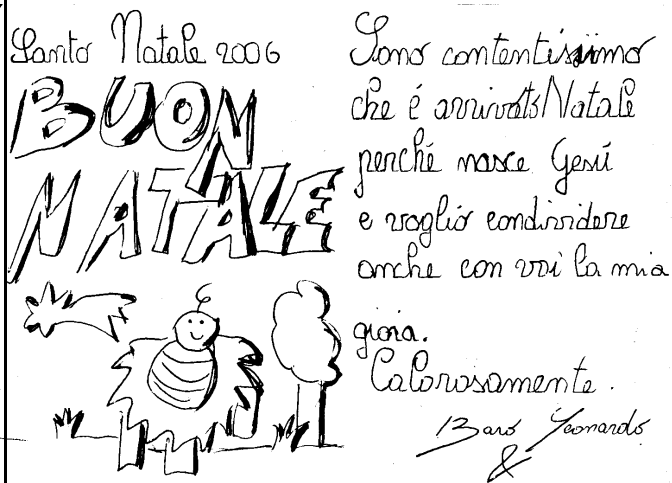 Santo Natale 2006
BUON
NATALE
Sono contentissimo
che é arrivato Natale
perché nasce Gesú
e voglio condividere
anche con voi la mia
gioia.
Calorosamente.
Baro Leonardo
&